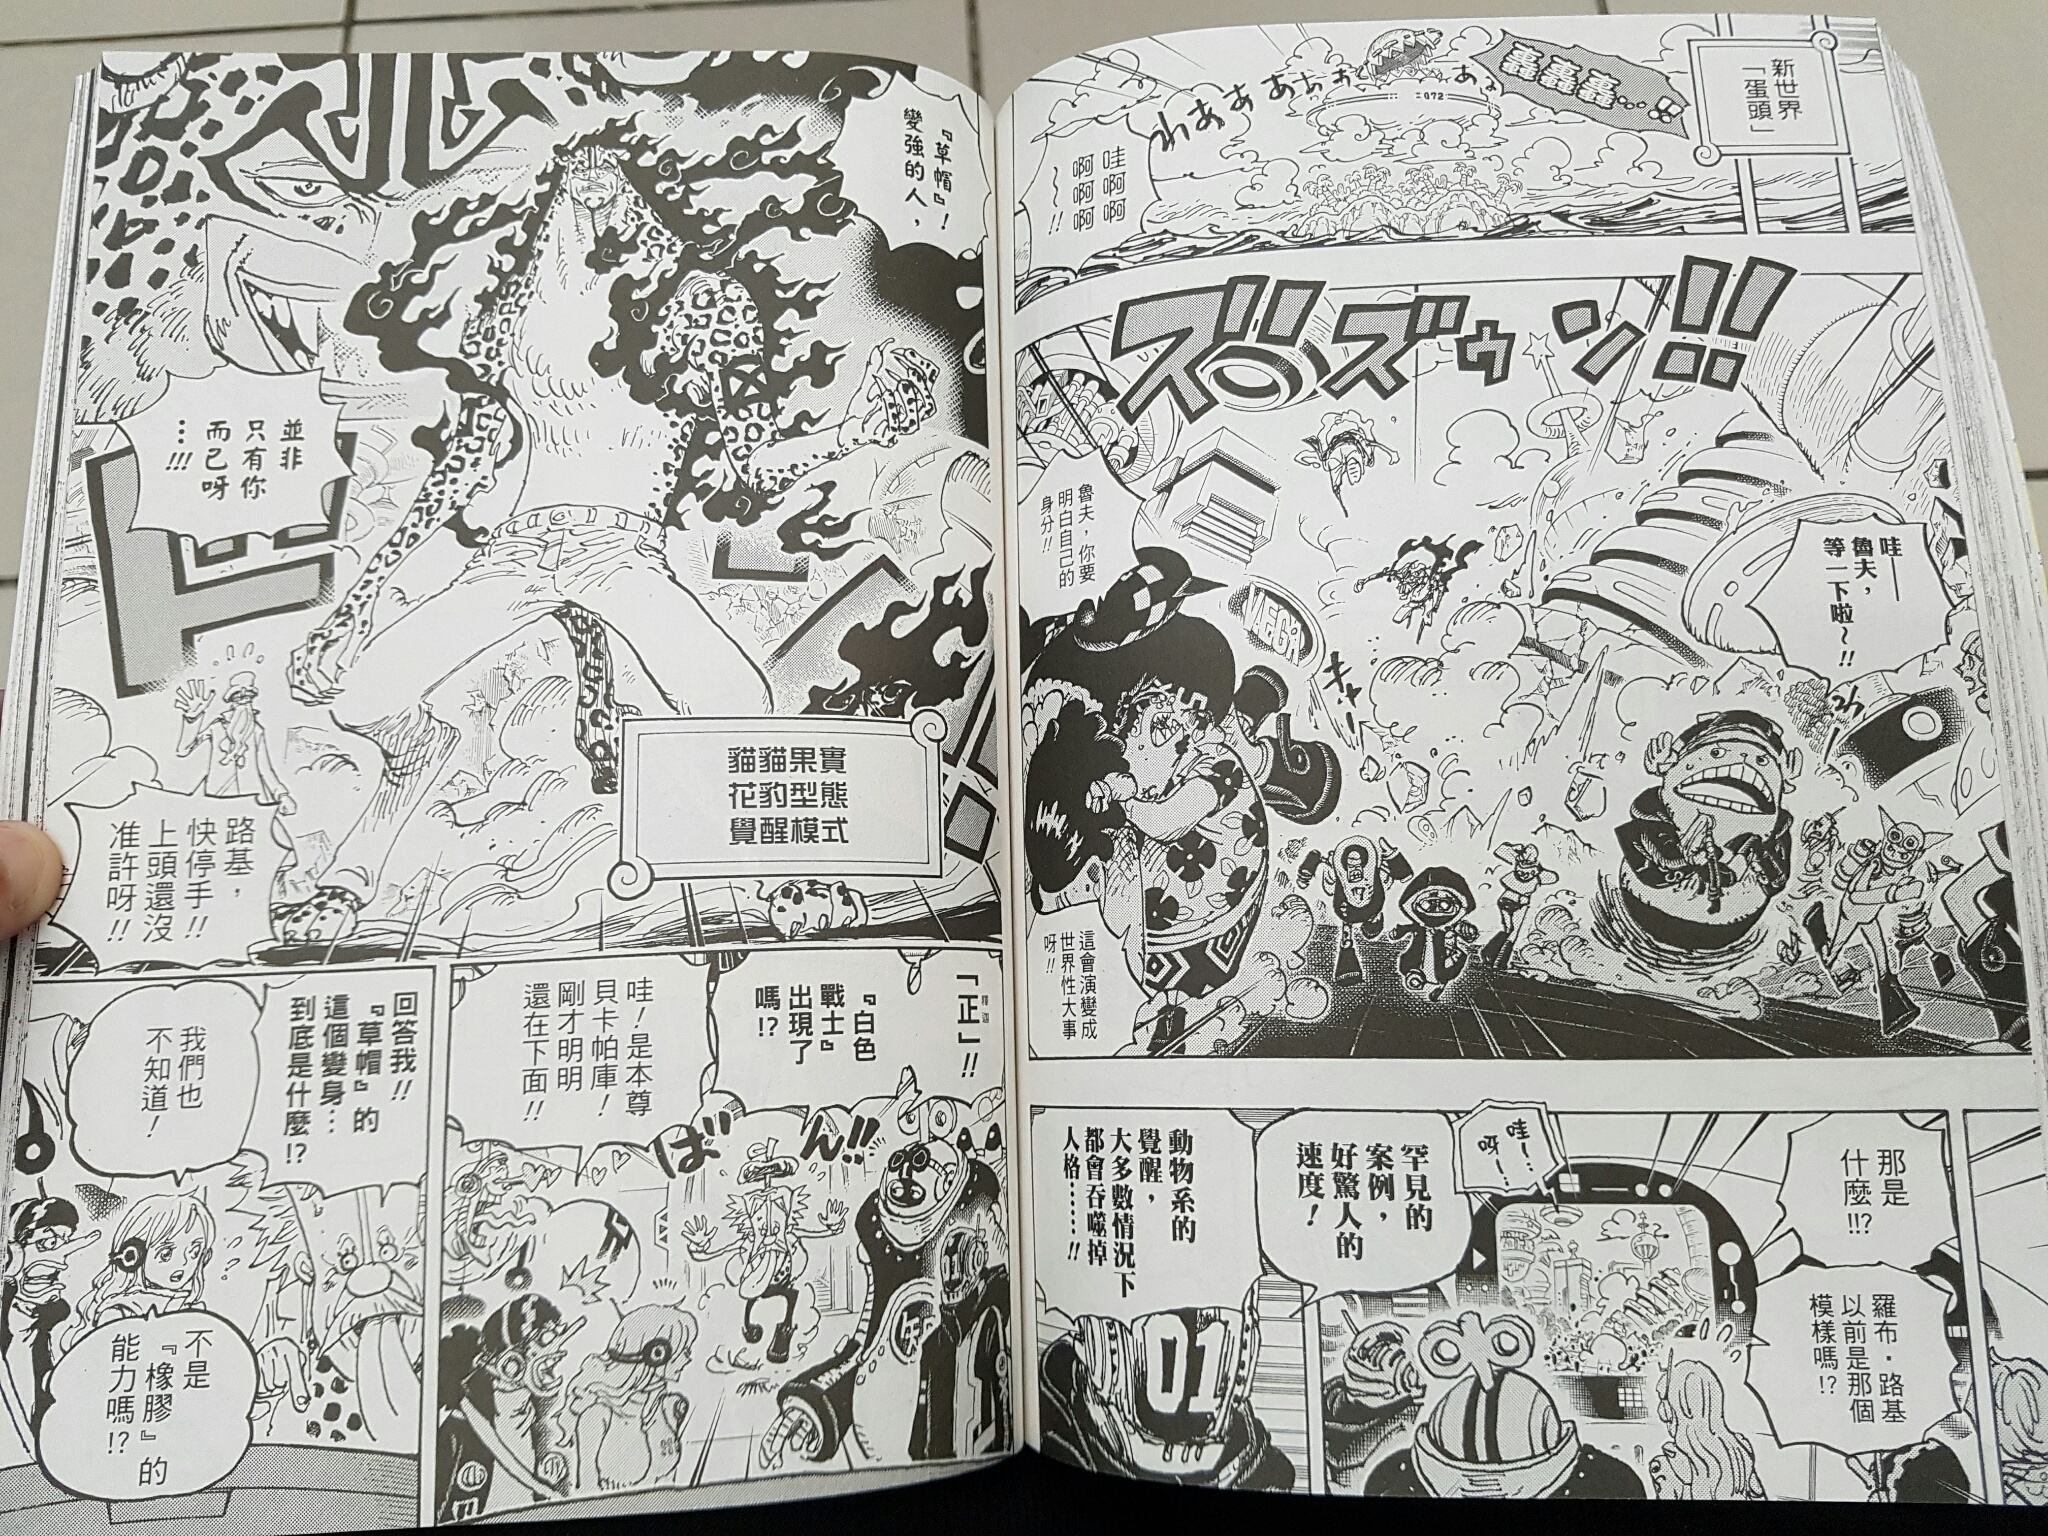 新世界
「蛋頭」
轟轟轟…!!
072
わあああああぁ
哇啊啊
啊啊啊
～!!
ズズゥン!!
哇——
魯夫，
等一下啦~!!
わー
魯夫，你要
明白自己的
身分!!
VEGA
キャー
7
這會演變成
世界性大事
呀!!
那是
什麼!!?
羅布・路基
以前是那個
模樣嗎!?
哇…
呀—
罕見的
案例，
好驚人的
速度！
動物系的
覺醒，
大多數情況下
都會吞噬掉
人格……!!
01
『草帽』！
變強的人，
並非
只有你
而已呀
…!!!
ド
貓貓果實
花豹型態
覺醒模式
路基，
快停手!!
上頭還沒
准許呀!!
「正」!!
釋迦
『白色
戰士』
出現了
嗎!?
哇！是本尊
貝卡帕庫！
剛才明明
還在下面!!
ばん!!
回答我!!
『草帽』的
這個變身…
到底是什麼!?
我們也
不知道！
不是
『橡膠』的
能力嗎!?